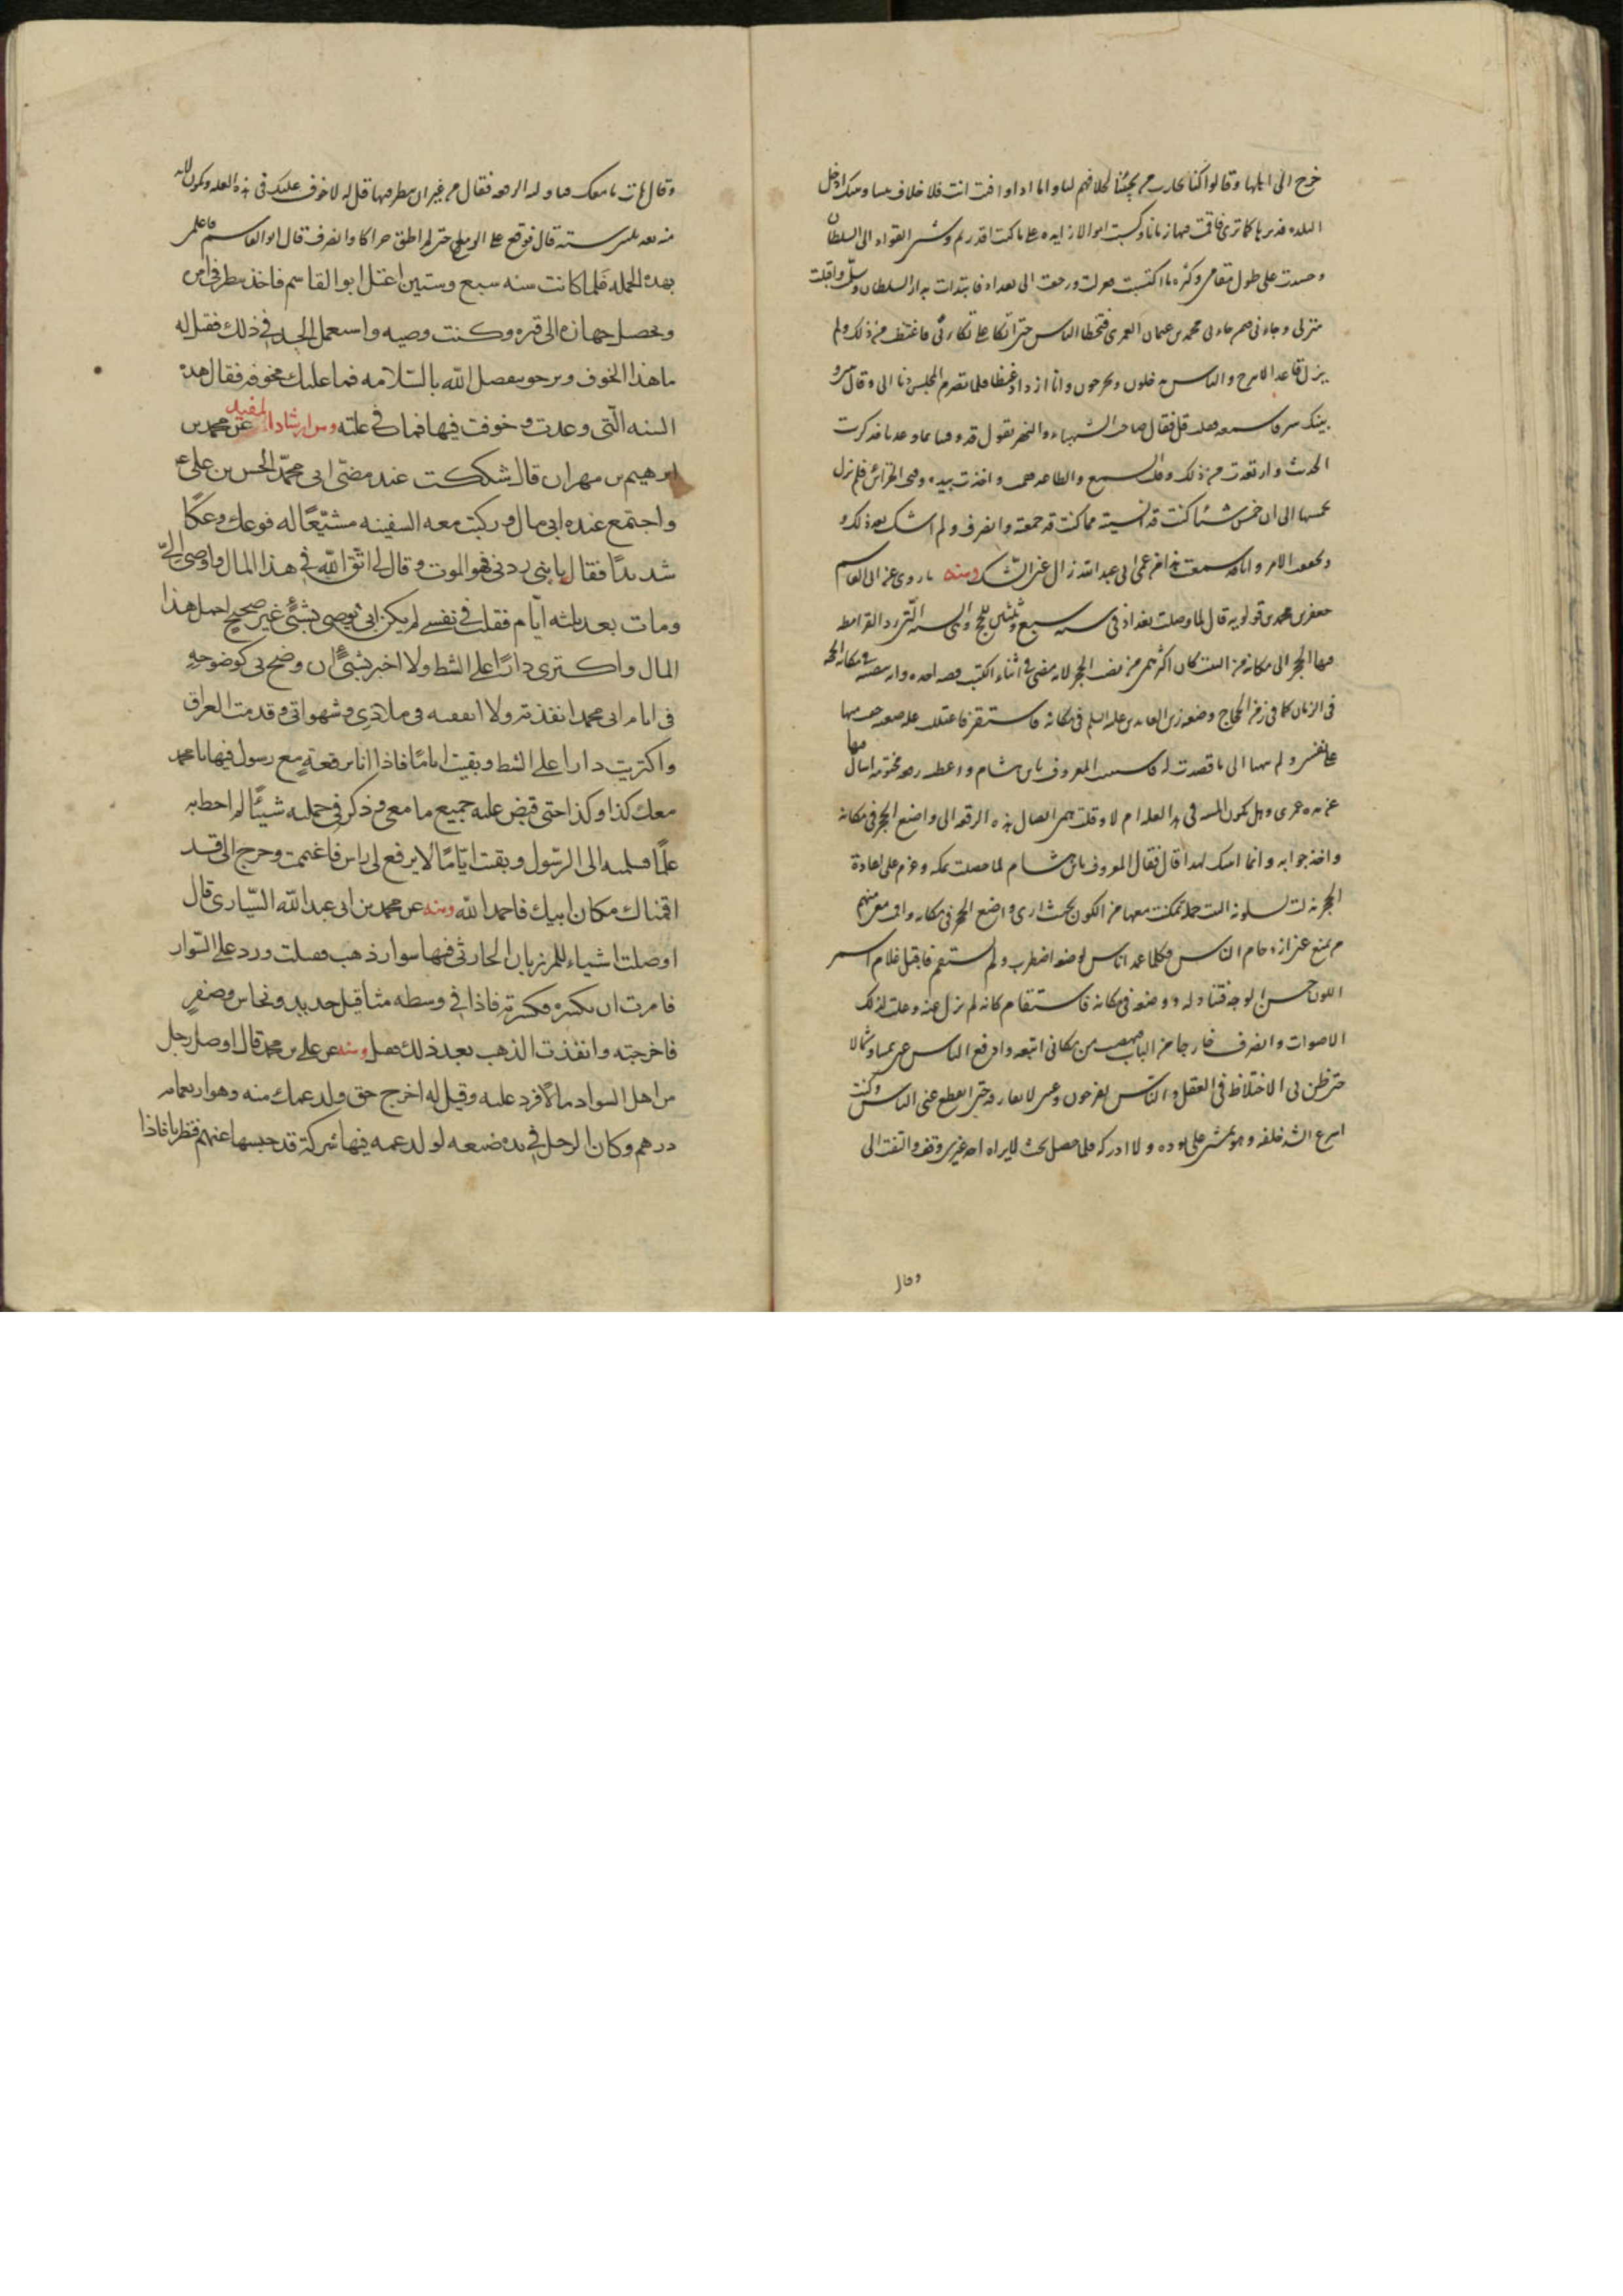 خرج الى اهلها وقالوا كنا نحارب من يجيئنا لخلافهم لنا واما اذا وافيت انت فلا خلاف بيننا وبينك ادخل
البلده فدبرها كما ترى فاقمت فيها زمانا وكسبت اموالا زايده على ما كنت اقدر ثم وشى القواد الى السلطان
وحسدت على طول مقامي وكثره ما اكتسبت فعزلت ورجعت الى بغداد فابتدات بدار السلطان وسلمت واقبلت
منزلى وجاءنى فيمن جاءنى محمد بن عثمان العمرى فتخطا الناس حتى اتكا على تكاءتى فاغتظت من ذلك ولم
يزل قاعدا لا يبرح والناس يدخلون ويخرجون وانا ازداد غيظا فلما تصرم المجلس دنا الى وقال بينى و
بينك سر فاسمعه فقلت قل فقال صاحب الشهباء والنهر يقول قد وفينا بما وعدنا فذكرت
الحديث وارتعدت من ذلك وقلت السمع والطاعه فقمت واخذت بيده وفتحت الخزائن فلم يزل
يخمسها الى ان خمس شيئا كنت قد انسيته مما كنت قد جمعته وانصرف ولم اشك بعد ذلك و
تحققت الامر وانا منذ سمعت هذا من عمى ابى عبد الله زال عنى الشك ومنه ما روى عن ابى القاسم
جعفر بن محمد بن قولويه قال لما وصلت بغداد فى سنه سبع وثلثين للحج وهى السنه التى رد القرامطه
فيها الحجر الى مكانه من البيت كان اكثر همى من نصب الحجر لانه مضى فى اثناء الكتب قصه اخذه وانه ينصبه فى مكانه الحجه
فى الزمان كما فى زمن الحجاج وضعه زين العابدين عليه السلم فى مكانه فاستقر فاعتللت عله صعبه خفت منها
على نفسى ولم يتهيا الى ما قصدت له فاستنبت المعروف بابن هشام واعطيته رقعه مختومه اسال فيها
عن مده عمرى وهل تكون المنيه فى هذه العله ام لا وقلت همى ايصال هذه الرقعه الى واضع الحجر فى مكانه
واخذ جوابه وانما اندبك لهذا قال فقال المعروف بابن هشام لما حصلت بمكه وعزم على اعادة
الحجر بذلت لسدنه البيت جمله تمكنت معها من الكون بحيث ارى واضع الحجر فى مكانه واقمت معى منهم
من يمنع عنى ازدحام الناس فكلما عمد انسان لوضعه اضطرب ولم يستقم فاقبل غلام اسمر
اللون حسن الوجه فتناوله ووضعه فى مكانه فاستقام كانه لم يزل عنه وعلت لذلك
الاصوات وانصرف خارجا من الباب فنهضت من مكانى اتبعه وادفع الناس عنى يمينا وشمالا
حتى ظن بى الاختلاط فى العقل والناس يفرجون وعينى لا تفارقه حتى انقطع عنى الناس وكنت
اسرع الشد خلفه وهو يمشى على توده ولا ادركه فلما حصل بحيث لا يراه احد غيرى وقف والتفت الى
وقال
وقال هات ما معك فناولته الرقعه فقال من غير ان ينظر فيها قل له لا خوف عليك فى هذه العله ويكون ما لا بد
منه بعد ثلثين سنه قال فوقع على الزمع حتى لم اطق حراكا وانصرف قال ابو القاسم فاعلمنى
بهذه الجمله فلما كانت سنه سبع وستين اعتل ابو القاسم فاخذ ينظر فى امره
وتحصيل جهازه الى قبره وكتبت وصيه واستعمل الجد فى ذلك فقيل له
ما هذا الخوف ونرجو بفضل الله بالسلامه فما عليك مخوفه فقال هذه
السنه التى وعدت وخوفت فيها فمات فى علته ومن ارشاد المفيد عن محمد بن
ابرهيم بن مهران قال شككت عند مضى ابى محمد الحسن بن على ع
واجتمع عند ابى مال وركبت معه السفينه مشيعا له فوعك وعكا
شديدا فقال يا بنى ردنى فهو الموت وقال لى اتق الله فى هذا المال واوصى الى
ومات بعد ثلثه ايام فقلت فى نفسى لم يكن ابى يوصى بشئ غير صحيح احمل هذا
المال واكترى دارا على الشط ولا اخبر بشئ ان وضح لى كوضوحه
فى ايام ابى محمد انفذته ولا انفقته فى ملاذى وشهواتى وقدمت العراق
واكتريت دارا على الشط وبقيت اياما فاذا انا برقعة مع رسول فيها يا محمد
معك كذا وكذا حتى قبض عليه جميع ما معى وذكر فى جملته شيئا لم احط به
علما فسلمته الى الرسول وبقيت اياما لا يرفع لى راس فاغتممت وخرج الى قد
اقمناك مكان ابيك فاحمد الله ومنه عن محمد بن ابى عبد الله السيارى قال
اوصلت اشياء للمرزبان الحارثى فيها سوار ذهب فقبلت ورد على السوار
فامرت ان بكسره فكسرته فاذا فى وسطه مثاقيل حديد ونحاس وصفر
فاخرجته وانفذت الذهب بعد ذلك فقبل ومنه عن على بن محمد قال اوصل رجل
من اهل السواد مالا فرد عليه وقيل له اخرج حق ولد عمك منه وهو اربعمايه
درهم وكان الرجل فى يده ضيعه لولد عمه فيها شركة قد حبسها عنهم فنظر ما فاذا